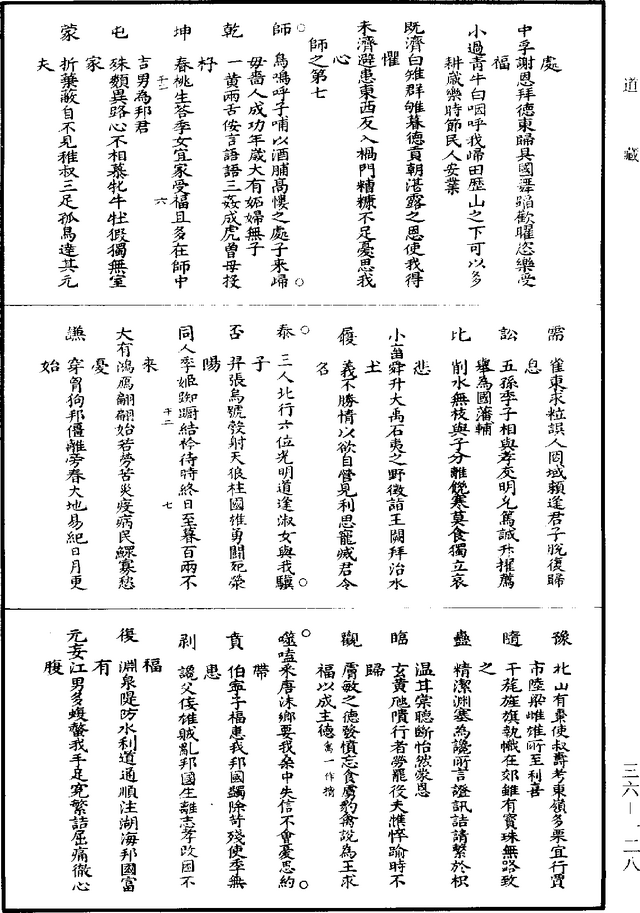 道藏
處
中孚謝恩拜德東歸吾國舞蹈歡躍恣樂受
福
小過青牛白咽呼我歸田歷山之下可以多
耕歲樂時節民人安業
既濟曰雉群雊暮德貢朝湛露之恩使我得
懽
未濟避患東西反入禍門糟糠不足憂思我
心
師之第七
師 鳥鳴呼子哺以酒脯高樓之處子來歸
母嗇人成功年歲大有妬婦無子
乾 一黃兩舌佞言語語三姦成虎曾母投
杼
坤 春桃生答季女宜家受福且多在師中
千一 六
吉男為邦君
屯 殊類異路心不相慕牝牛牡猳獨無室
家
蒙 折葉蔽目不見稚叔三足孤烏遠其元
夫
需 雀東求粒誤入罔域賴逢君子脫復歸
息
訟 五孫季子相與孝友明允篤誠升擢薦
舉為國藩輔
比 削水無枝與子分離饑寒莫食獨立哀
悲
小畜舜升大禹石夷之野徵詣王闕拜治水
土
履 義不勝情以欲自營見利思寵滅君令
名
泰 三人北行六位光明道逢淑女與我驥
子
否 羿張烏號彀射天狼柱國雄勇鬭死滎
陽
同人季姬踟躕結衿待時終日至暮百兩不
千二 七
來
大有鴻鴈翩翩始若勞苦災疫病民鰥寡愁
憂
謙 穿胷狗邦僵離旁春大地易紀日月更
始
豫 北山有棗使叔壽考東嶺多栗宜行賈
市陸梁雌雄所至利喜
隨 干旄旌旗執幟在郊雖有寶珠無路致
之
蠱 精潔淵塞為讒所言證訊詰請繫於枳
温甘棠聽斷怡然蒙恩
臨 玄黃虺隤行者勞罷役夫憔悴踰時不
歸
觀 膚敏之德發憤忘食虜豹禽說為王求
福以成主德
噬嗑采唐沬鄉要我桑中失信不會憂思約
帶
賁 伯寧子福惠我邦國蠲除苛殘使季無
患
剝 讒父佞雄賊亂邦國生離忠孝敗困不
福
復 淵泉隄防水利道通順注湖海邦國富
有
元妄江男多蝮螫我手足冤繁詰屈痛徹心
腹
三六—一二八